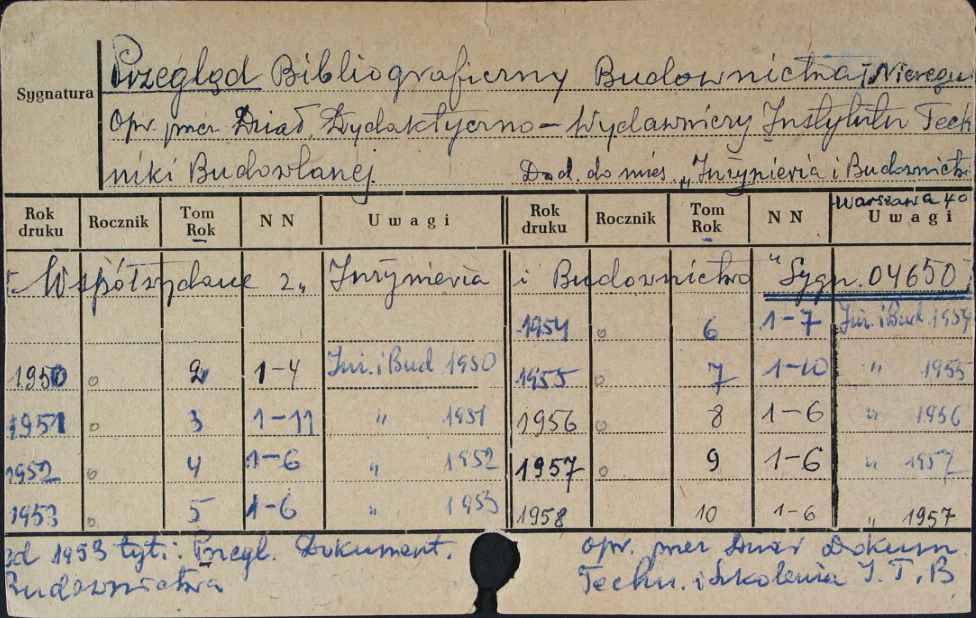 Sygnatura
Przegląd Bibliograficzny Budownictwa i
Opr. przez Dział Dydaktyczno-Wydawniczy Instytutu Tech
niki Budowlanej Dod. do mies. "Inżynieria i Budownictw
Warszawa 40
Rok druku Rocznik Tom Rok N N Uwagi Rok druku Rocznik Tom Rok N N Uwagi
Współwydane z "Inżynieria i Budownictwo" Sygn. 04650
1954 o 6 1-7 Inż. i Bud. 1954
1950 o 2 1-4 Inż. i Bud 1950 1955 o 7 1-10 " 1955
1951 o 3 1-11 " 1951 1956 o 8 1-6 " 1956
1952 o 4 1-6 " 1952 1957 o 9 1-6 " 1957
1953 o 5 1-6 " 1953 1958 10 1-6 " 1957
od 1953 tyt.: Przegl. Dokument.
Budownictwa
opr. przez Dział Dokum.
Techn. i Szkolenia I.T.B